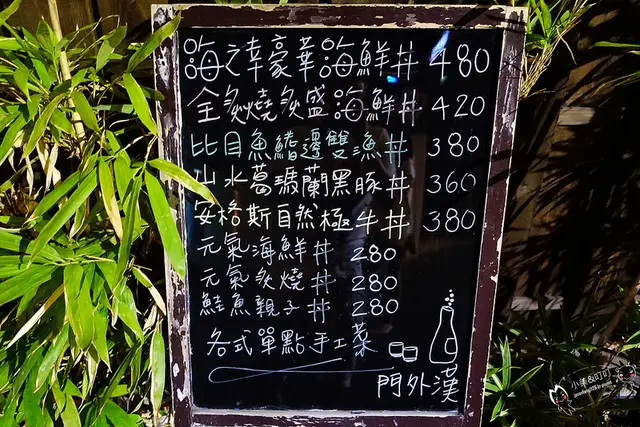 海之幸豪華海鮮丼 480
全炙燒炙盛海鮮丼 420
比目魚鰭邊雙漁丼 380
山水葛瑪蘭黑豚丼 360
安格斯自然極牛丼 380
元氣海鮮丼 280
元氣炙燒丼 280
鮭魚親子丼 280
各式單點手工菜
門外漢